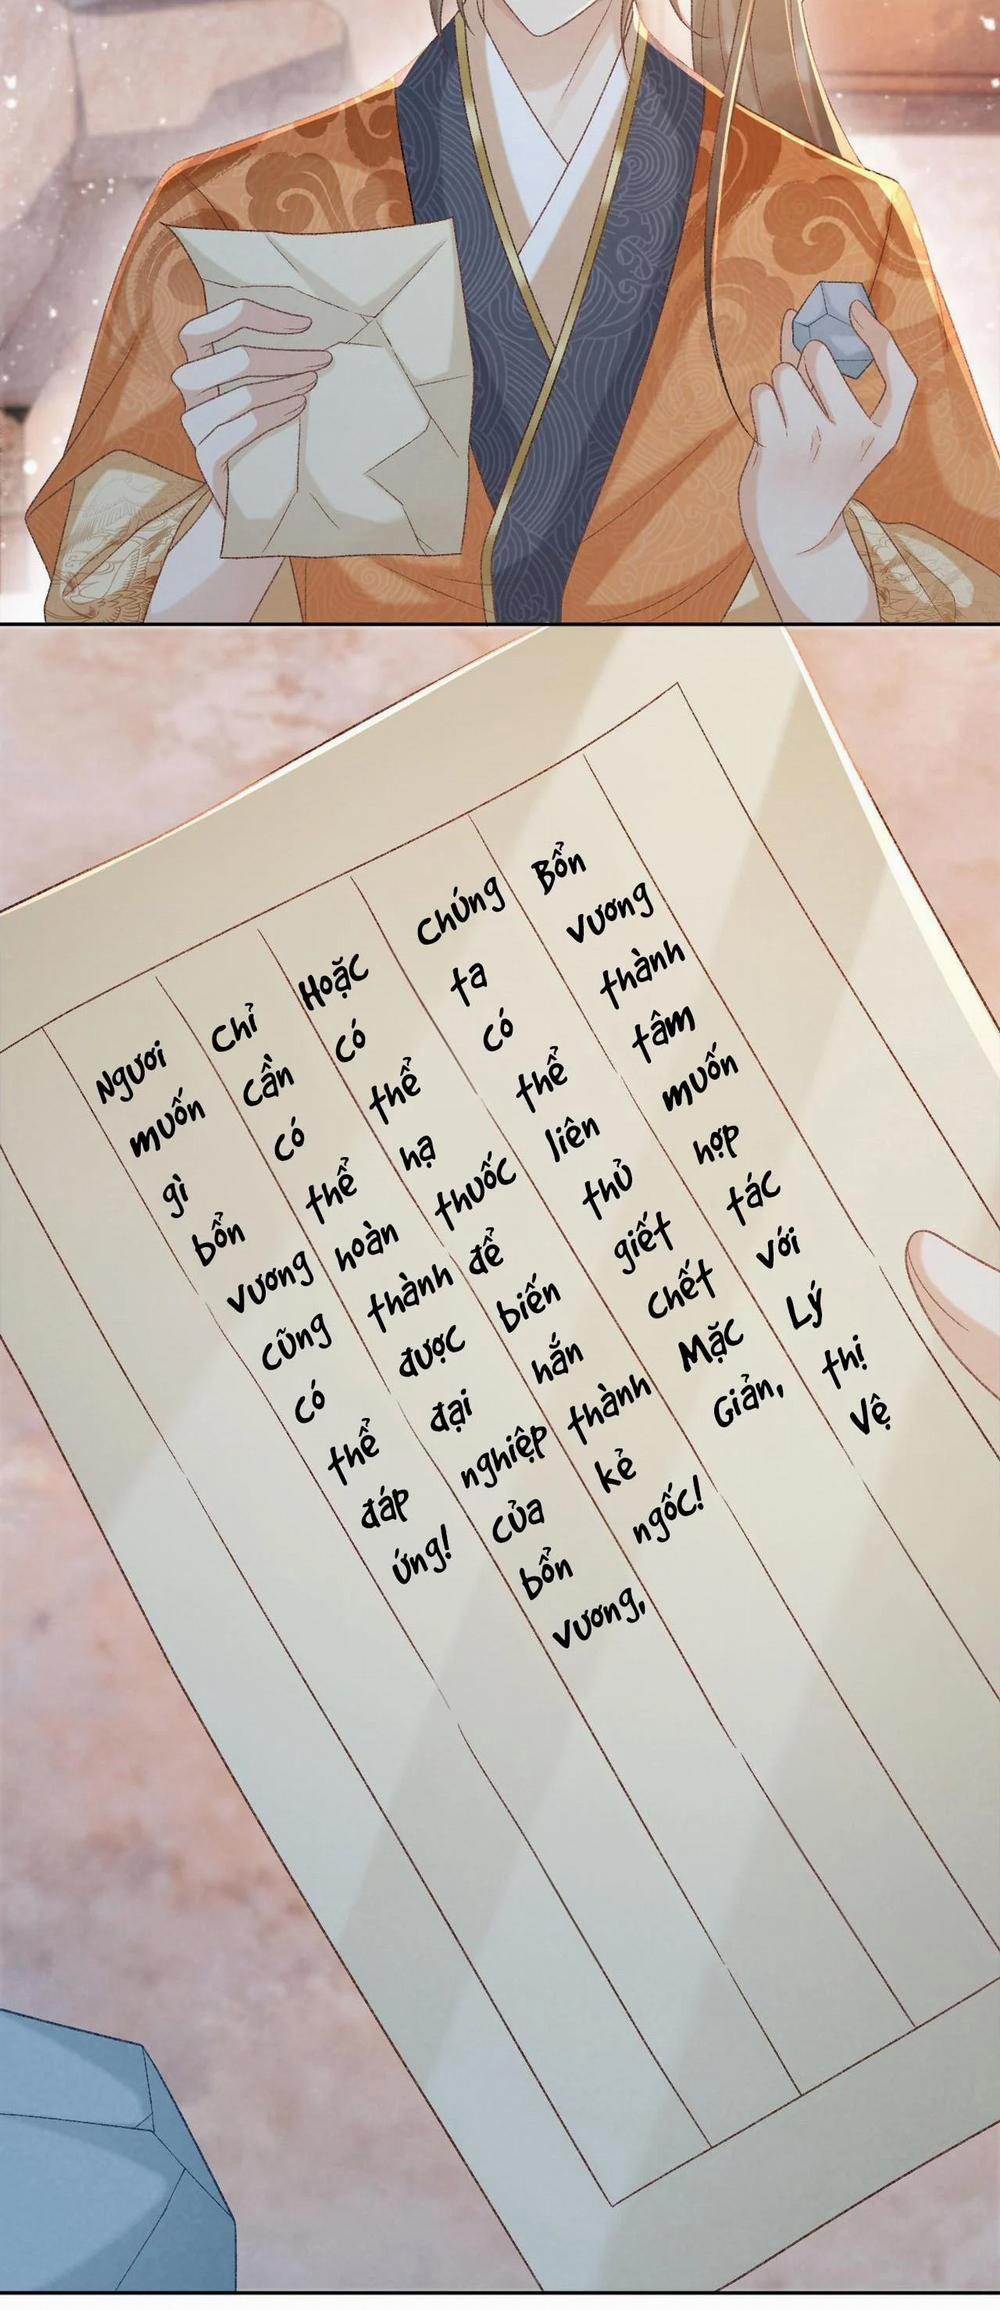 Bổn vương thành tâm muốn hợp tác với Lý thị vệ
Chúng ta có thể liên thủ giết chết Mặc Giản,
Hoặc có thể hạ thuốc để biến hắn thành kẻ ngốc!
Chỉ cần có thể hoàn thành được đại nghiệp của bổn vương,
Ngươi muốn gì bổn vương cũng có thể đáp ứng!